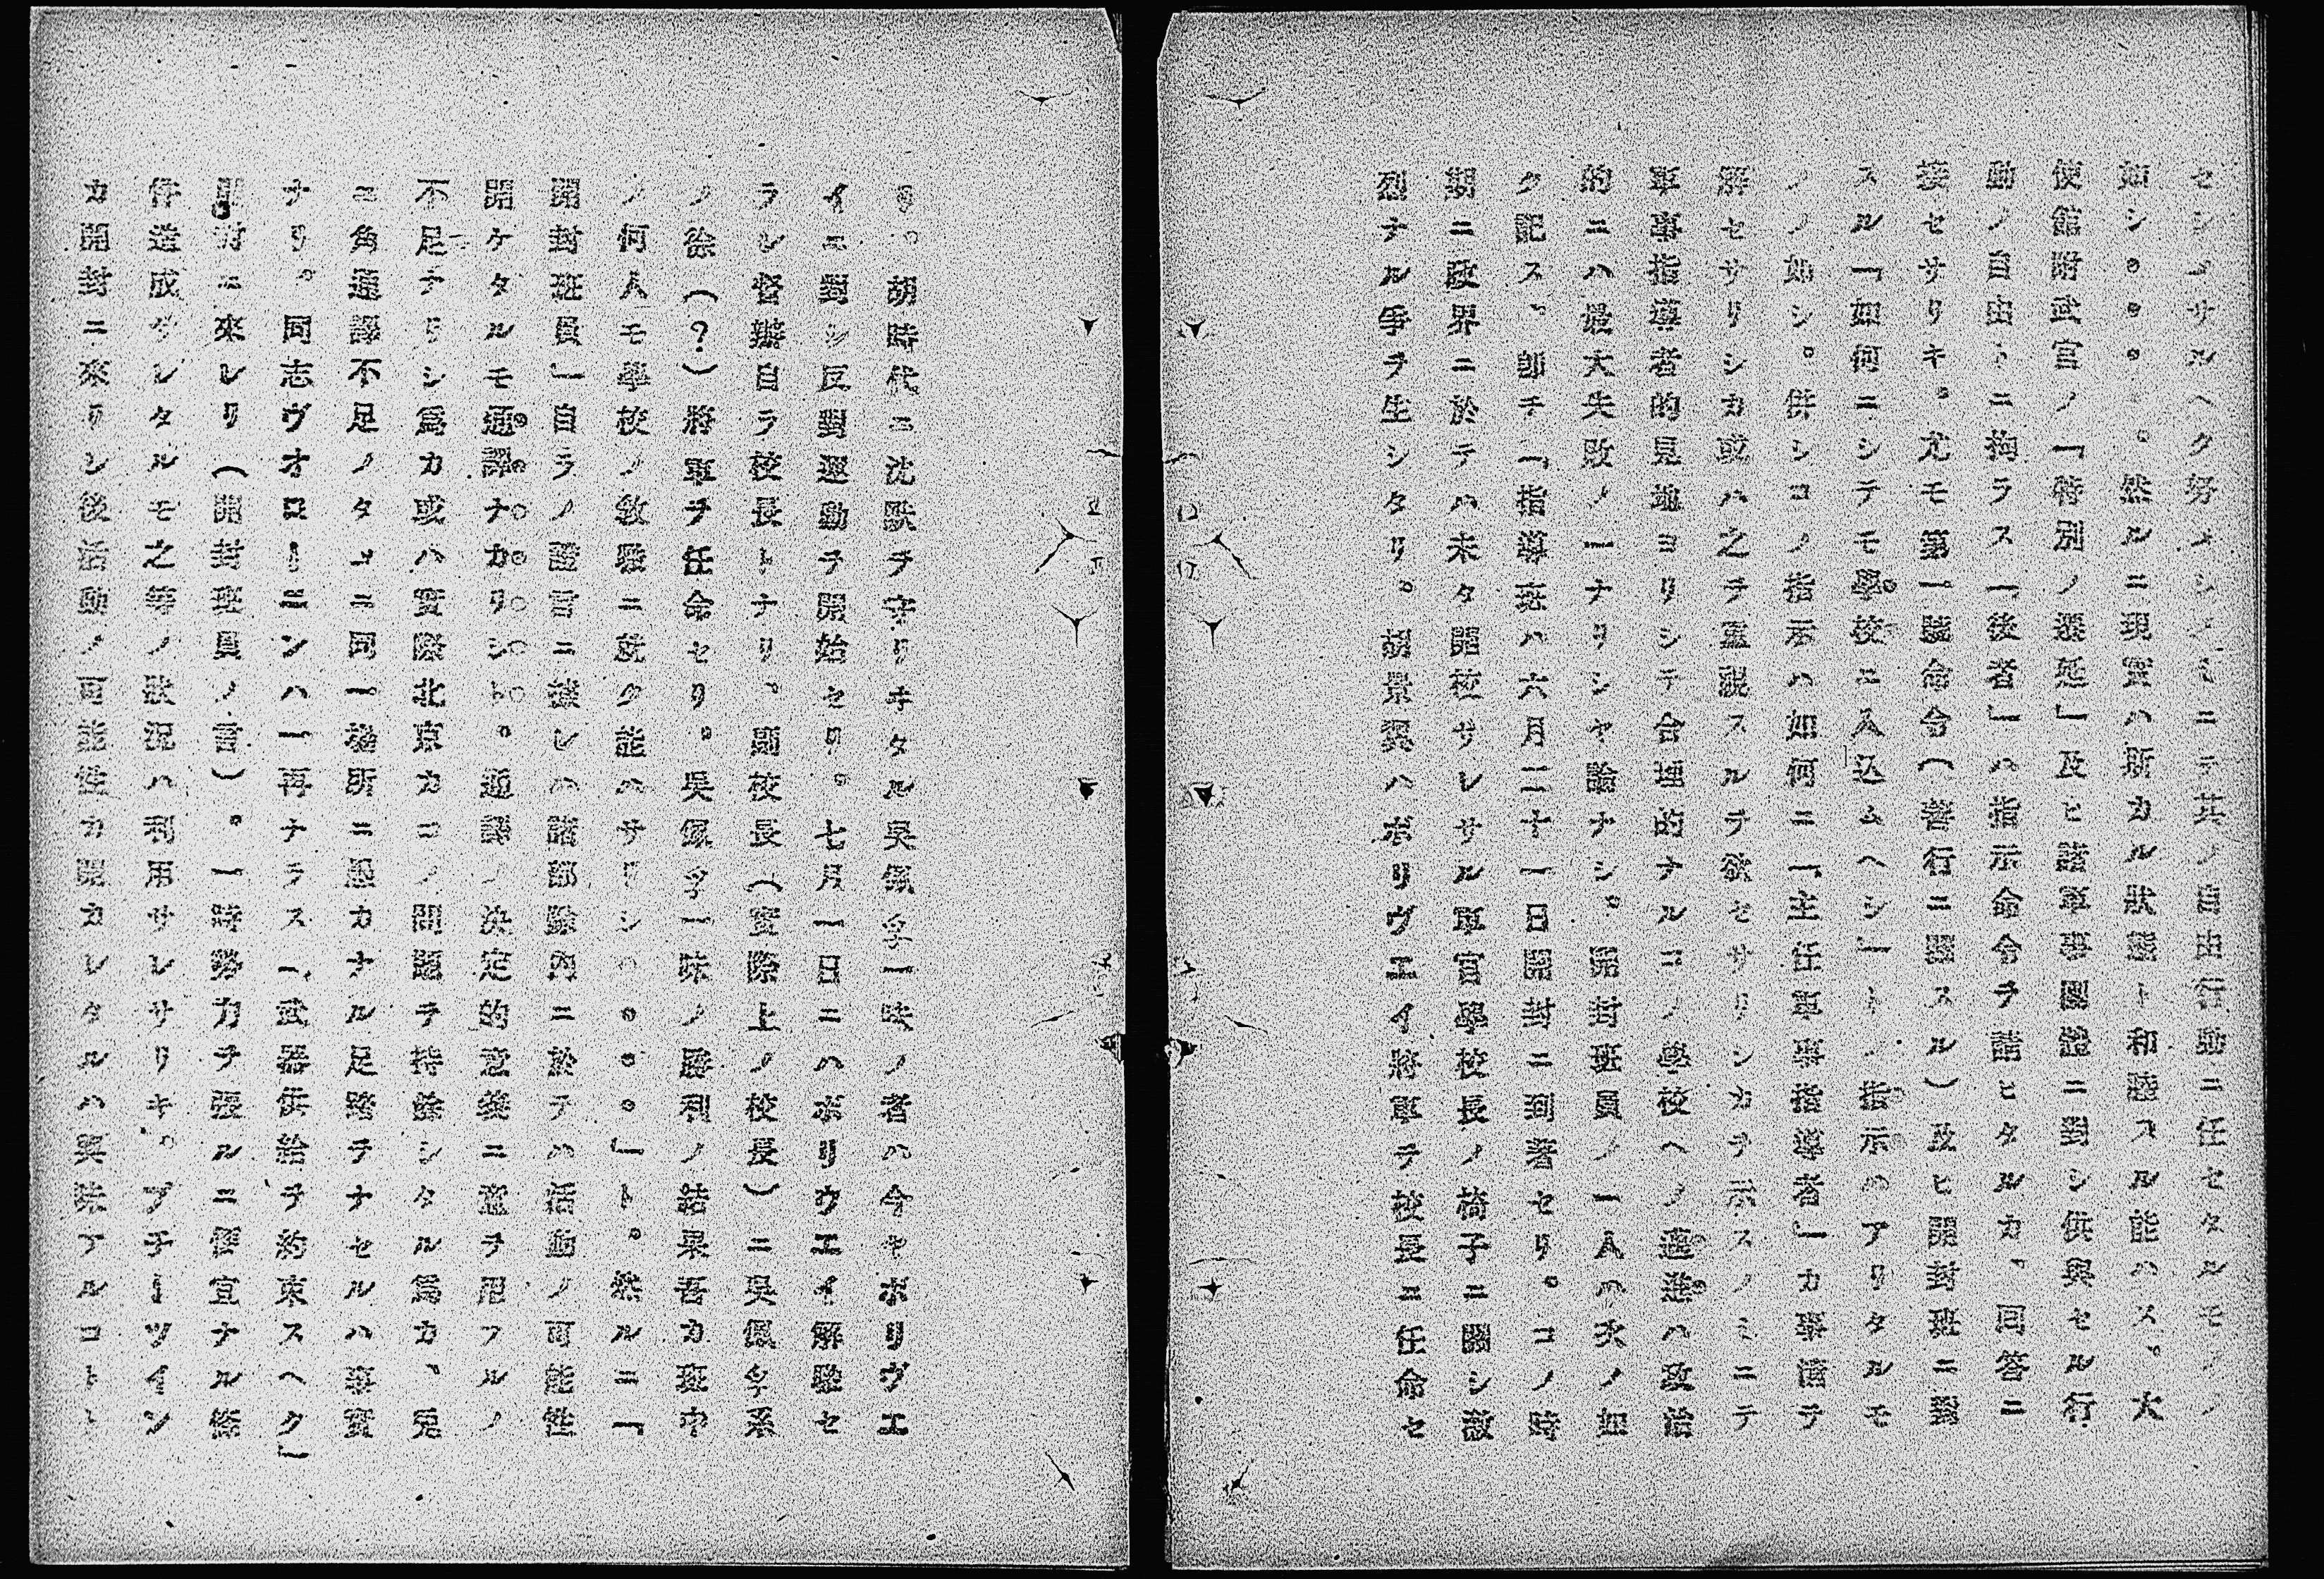 セシメサルヘク努メシメミニテ其ノ自由行動ニ任セタルモノノ
如シ。。。。。然ルニ現實ハ斯カル狀態ト和睦スル能ハス。大
使館附武官ノ「特別ノ遷延」及ヒ諸軍事團體ニ對シ供與セル行
動ノ自由トニ拘ラス「後者」ハ指示命令ヲ諾ヒタルカ、回答ニ
接セサリキ。尤モ第一號命令(着行ニ關スル)及ヒ開封班ニ關
スル「如何ニシテモ學校ニ入込ムヘシ」トノ指示ハアリタルモ
ノノ如シ。併シコノ指示ハ如何ニ「主任軍事指導者」カ事情ヲ
解セサリシカ或ハ之ヲ重視スルヲ欲セサリシカヲ示スノミニテ
軍事指導者的見地ヨリシテ合理的ナルコノ學校ヘノ進港ハ政治
的ニハ最大失敗ノ一ナリシヤ論ナシ。開封班員ノ一人ハ次ノ如
ク記ス。即チ「指導班ハ六月二十一日開封ニ到著セリ。コノ時
期ニ政界ニ於テハ未タ開校サレサル軍官學校長ノ椅子ニ關シ激
烈ナル爭ヲ生シタリ。胡景翼ハボリヴエイ將軍ヲ校長ニ任命セ
リ。胡時代ニ沈默ヲ守リキタル吳佩孚一味ノ者ハ今ヤボリヴエ
イニ對シ反對運動ヲ開始セリ。七月一日ニハボリウエイ解職セ
ラレ督辦自ラ校長トナリ。副校長(實際上ノ校長)ニ吳佩孚系
ノ徐(?)將軍ヲ任命セリ。吳佩孚一味ノ勝利ノ結果吾カ班中
ノ何人モ學校ノ敎職ニ就ク能ハサリシ。。。。」ト。然ルニ「
開封班員」自ラノ證言ニ據レハ諸部隊內ニ於テハ活動ノ可能性
開ケタルモ通譯ナカリシト。通譯ノ決定的意義ニ意ヲ用フルノ
不足ナリシ爲カ或ハ實際北京カコノ問題ヲ持餘シタル爲カ、兎
ニ角通譯不足ノタメニ同一場所ニ愚カナル足踏ヲナセルハ事實
ナリ。同志ヴオローニンハ一再ナラス「武器供給ヲ約束スヘク」
開封ニ來レリ(開封班員ノ言)。一時勢力ヲ張ルニ便宜ナル條
件造成サレタルモ之等ノ狀況ハ利用サレサリキ。プチーツイン
カ開封ニ來リシ後活動ノ可能性カ開カレタルハ興味アルコトト